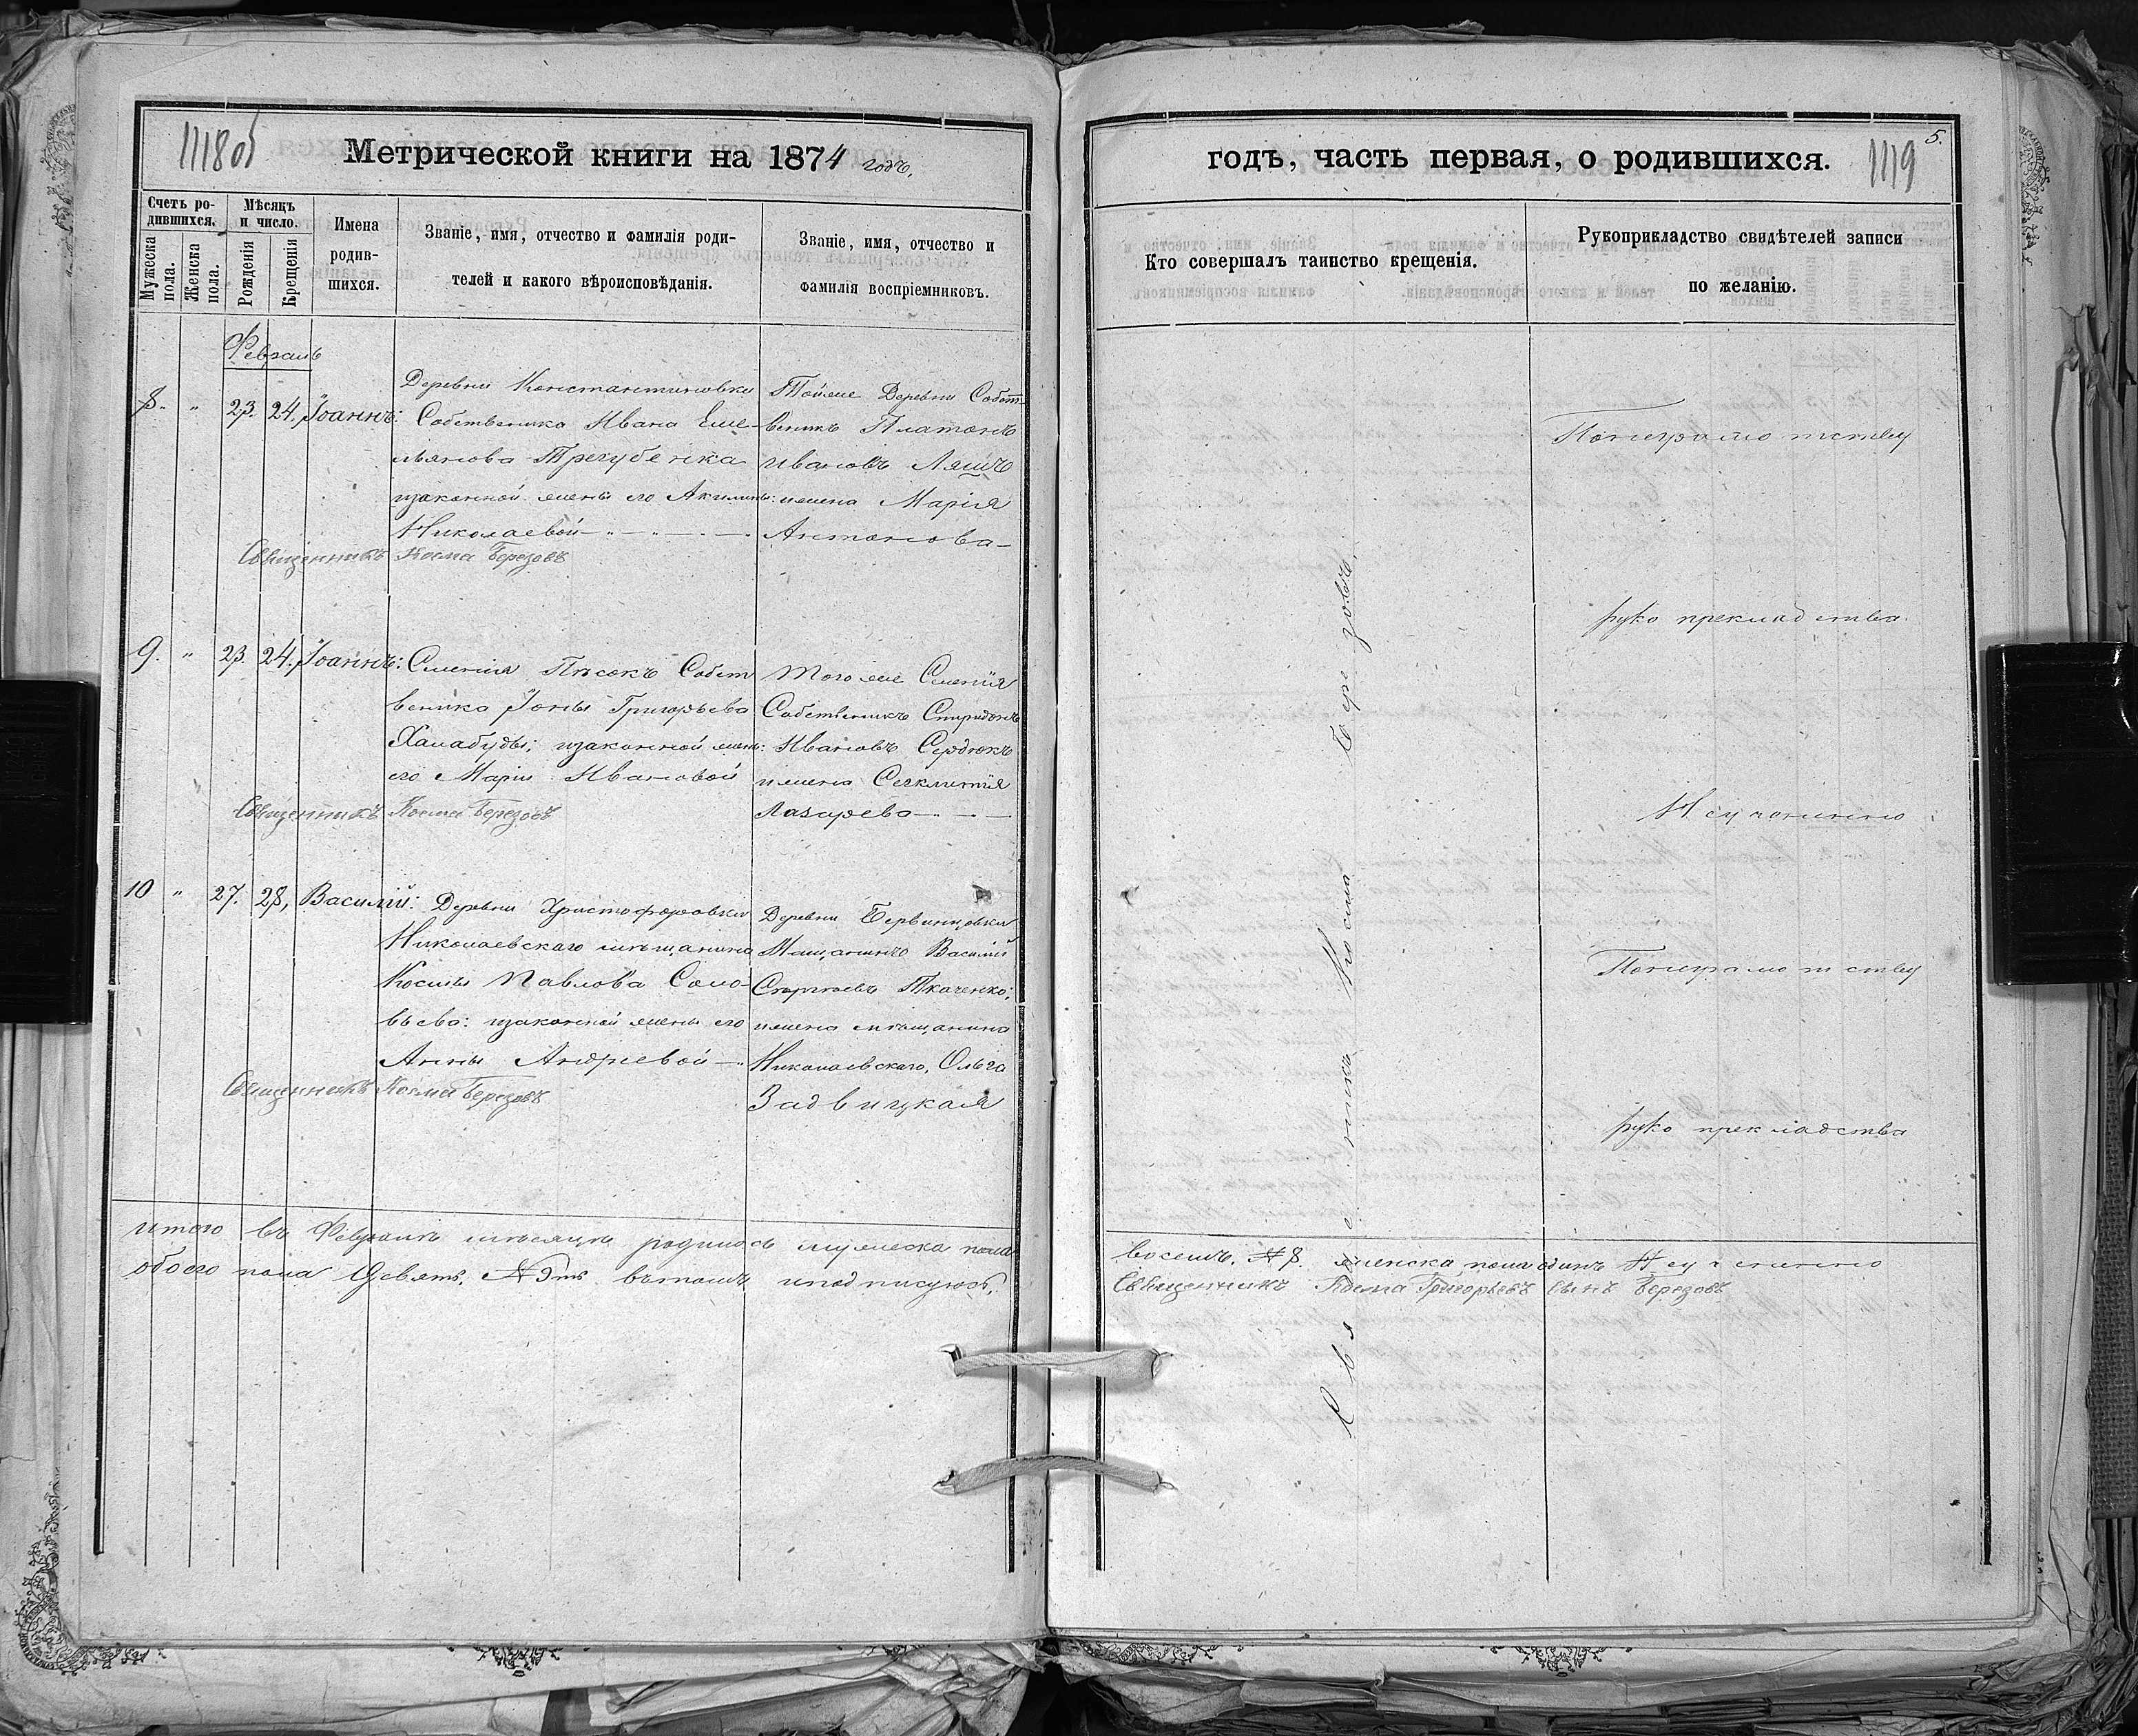 1118об
Метрической книги на 1874 годъ,
Счетъ ро-
дившихся.
Мѣсяцъ
и число.
Мужеска
пола.
Женска
пола.
Рожденія
Крещенія
Имена
родив-
шихся.
Званіе, имя, отчество и фамилія роди-
телей и какого вѣроисповѣданія.
Званіе, имя, отчество и
фамилія воспріемниковъ.
Февраль
8. " 23. 24. Іоаннъ:
Деревни Константиновки
Собственика Ивана Еме-
льянова Трегубенка
изаконной жены его Акилины:
Николаевой
Тойже Деревни Собст-
веникъ Платонъ
Ивановъ Ляшъ
ижена Марія
Антонова
Священникъ Косма Березовъ
9. " 23. 24. Іоаннъ:
Селенія Пѣсокъ Собст
веника Іоны Григорьева
Халабуды; изаконной жены:
его Маріи Ивановой
Того же Селенія
Собственикъ Спиридонъ
Ивановъ Сердюкъ
ижена
Лазарева
Священникъ Косма Березовъ
10 " 27. 28, Василій:
Деревни Христофоровки
Николаевскаго мѣщанина
Космы Павлова Соло-
вьева: изаконной жены его
Анны Андреевой
Деревни
Мещанинъ Василій
Сергѣевъ Ткаченко;
ижена мѣщанина
Николаевскаго, Ольга
Задвицкая
Священникъ Косма Березовъ
итого въ Февралѣ мѣсяцѣ родилось мужеска пола
обоего пола Девять. №9ть вътомъ иподписуюсь,
5.
годъ, часть первая, о родившихся. 1119
Кто совершалъ таинство крещенія.
Рукоприкладство свидѣтелей записи
по желанію.
Священникъ Косма Березовъ,
Понеграмотству
руко прекладства
Неучинено
Понеграмотству
руко прекладства
восемь. №8. женска пола одинъ Неучинено
Священникъ Косма Григорьевъ сынъ Березовъ